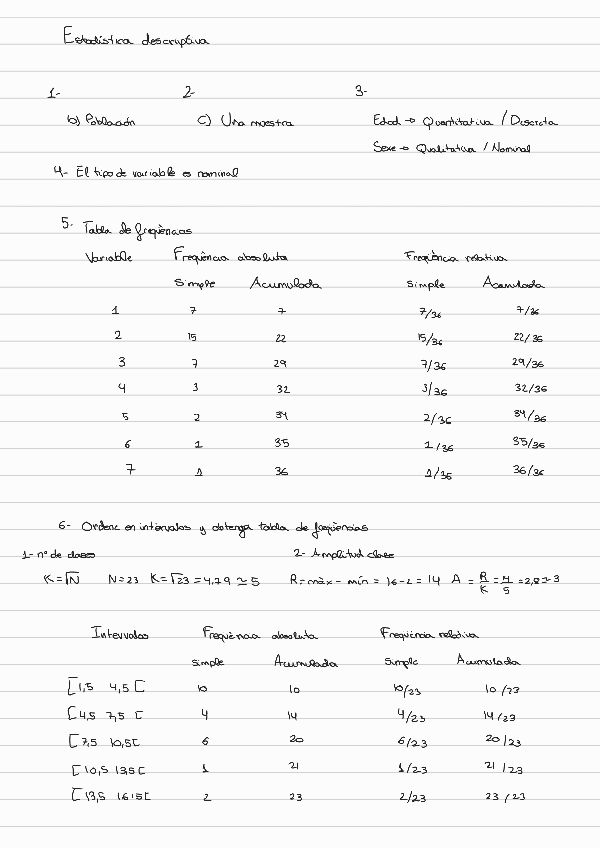 Estadística descriptiva
1- 2- 3-
b) Población c) Una muestra Edad → Quantitativa / Discreta
Sexe → Qualitativa / Nominal
4- El tipo de variable es nominal
5- Tabla de freqüencias
Variable Freqüència absoluta Freqüència relativa
Simple Acumulada Simple Acumulada
1 7 7 7/36 7/36
2 15 22 15/36 22/36
3 7 29 7/36 29/36
4 3 32 3/36 32/36
5 2 34 2/36 34/36
6 1 35 1/36 35/36
7 1 36 1/36 36/36
6- Ordene en intérvalos y obtenga tabla de freqüencias
1- nº de clases 2- Amplitud clase
K = √N N = 23 K = √23 = 4,79 ≃ 5 R = màx - mín = 16 - 2 = 14 A = R/K = 14/5 = 2,8 ≃ 3
Intervalos Freqüència absoluta Freqüència relativa
Simple Acumulada Simple Acumulada
[1,5 4,5[ 10 10 10/23 10/23
[4,5 7,5[ 4 14 4/23 14/23
[7,5 10,5[ 6 20 6/23 20/23
[10,5 13,5[ 1 21 1/23 21/23
[13,5 16,5[ 2 23 2/23 23/23